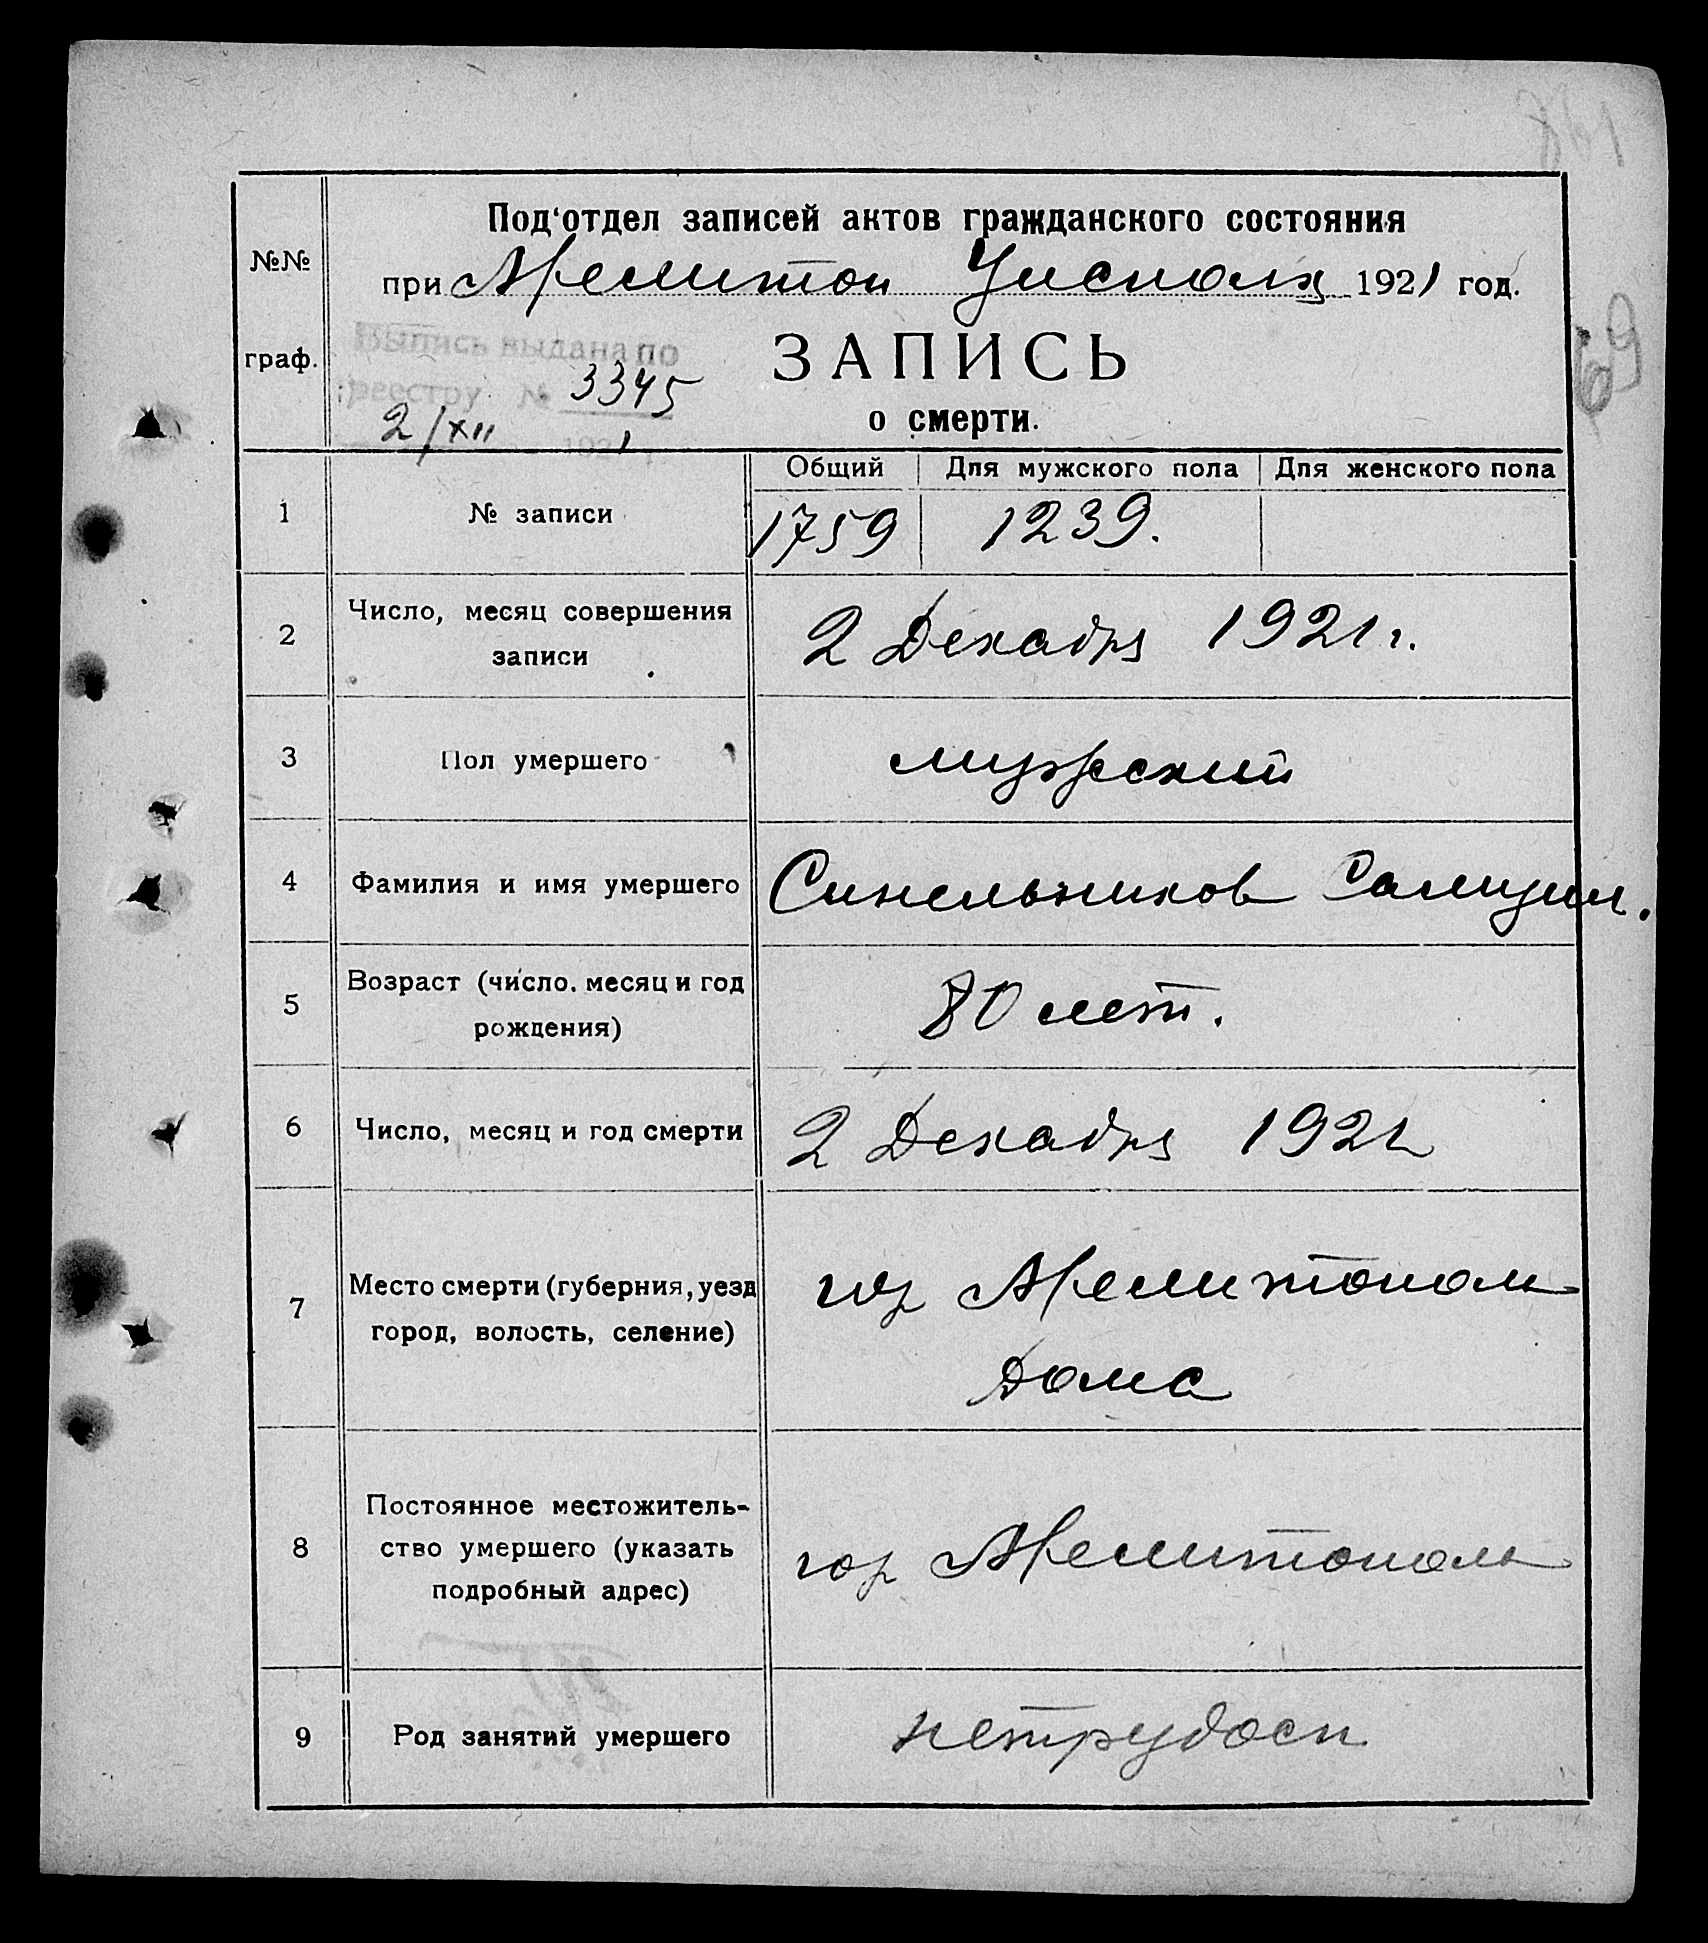 Под'отдел записей актов гражданского состояния
№№
при Мелитоп Уисполк 1921 год.
граф.
Выпись выдана по
реестру № 3345
2/XII 1921
ЗАПИСЬ
о смерти.
Общий Для мужского пола Для женского пола
1 № записи 1759 1239.
2 Число, месяц совершения записи 2 Декабря 1921 г.
3 Пол умершего мужский
4 Фамилия и имя умершего Синельников Самуил.
5 Возраст (число, месяц и год рождения) 80 лет.
6 Число, месяц и год смерти 2 Декабря 1921
7 Место смерти (губерния, уезд город, волость, селение) гор Мелитополь
дома
8 Постоянное местожитель-
ство умершего (указать подробный адрес) гор Мелитополь
9 Род занятий умершего нетрудосп